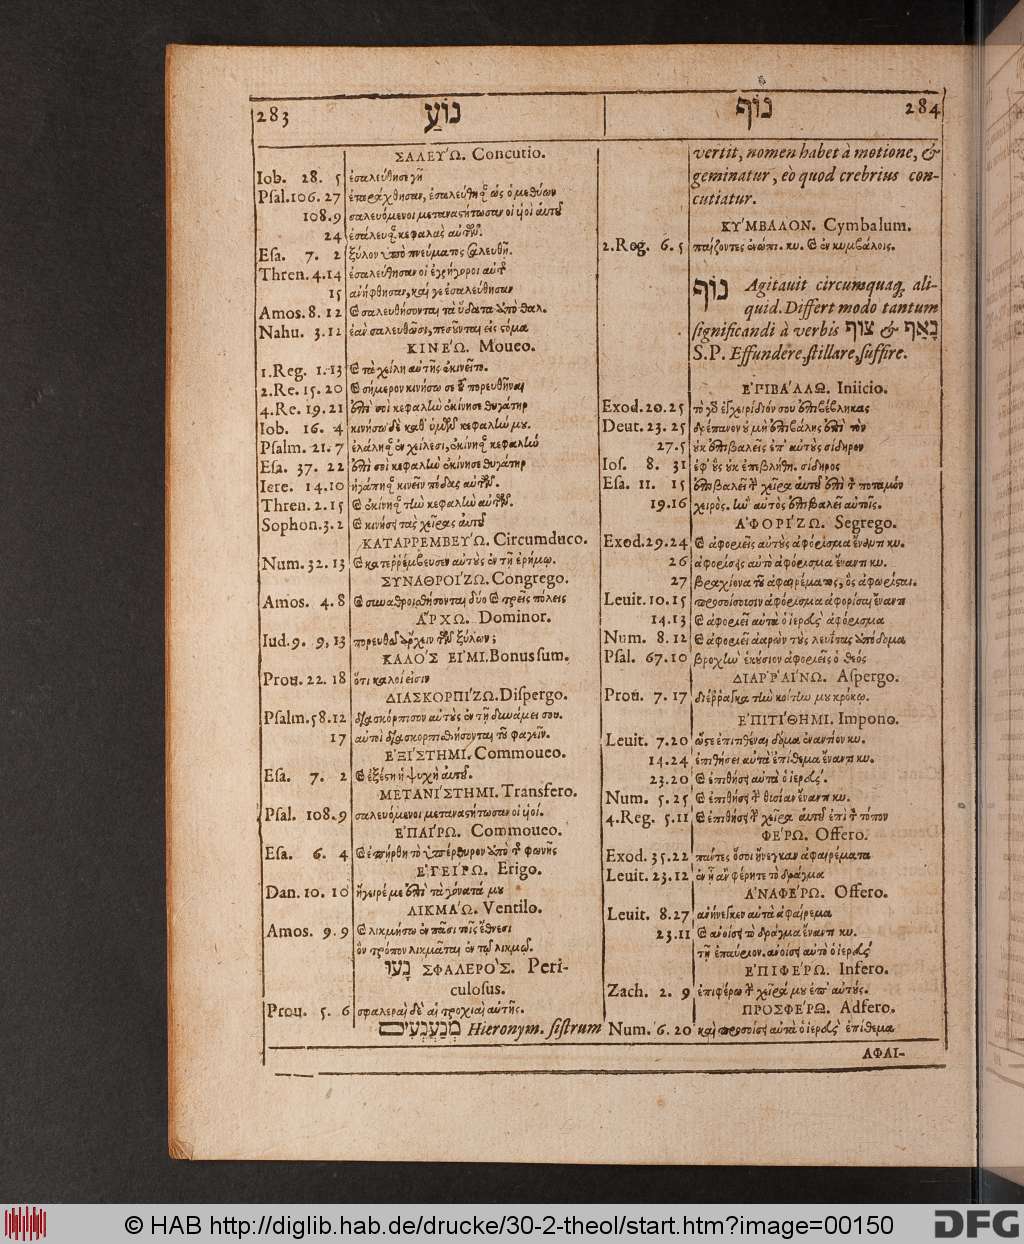 283 נוֹעַ
ΣΑΛΕΎΩ. Concutio.
Iob. 28. 5 ἐσαλεύθησε γῆ
Psal. 106. 27 ἐταράχθησαν, ἐσαλεύθησαν ὡς ὁ μεθύων
108. 9 σαλευόμενοι μεταναστήτωσαν οἱ υἱοὶ αὐτοῦ
24 ἐσάλευσαν κεφαλὰς αὐτῶν.
Esa. 7. 2 ξύλον ὑπὸ πνεύματος σαλευθῇ.
Thren. 4. 14 ἐσαλεύθησαν οἱ ἐγρήγοροι αὐτῆς
15 ἀνήφθησαν, καί γε ἐσαλεύθησαν
Amos. 8. 12 καὶ σαλευθήσονται τὰ ὕδατα ὑπὸ θαλ.
Nahu. 3. 12 ἐὰν σαλευθῶσι, πεσοῦνται εἰς στόμα
ΚΙΝΈΩ. Moueo.
1. Reg. 1. 13 καὶ τὰ χείλη αὐτῆς ἐκινεῖτο.
2. Re. 15. 20 καὶ σήμερον κινήσω σε τοῦ πορευθῆναι
4. Re. 19. 21 ἐπὶ σοὶ κεφαλὴν ἐκίνησε θυγάτηρ
Iob. 16. 4 κινήσω δὲ καθ' ὑμῶν κεφαλήν μου.
Psalm. 21. 7 ἐλάλησαν ἐν χείλεσι, ἐκίνησαν κεφαλὴν
Esa. 37. 22 ἐπὶ σοὶ κεφαλὴν ἐκίνησε θυγάτηρ
Iere. 14. 10 ἠγάπησαν κινεῖν πόδας αὐτῶν.
Thren. 2. 15 καὶ ἐκίνησαν τὴν κεφαλὴν αὐτῶν.
Sophon. 3. 2 καὶ κινήσῃ τὰς χεῖρας αὐτοῦ
ΚΑΤΑΡΡΕΜΒΕΎΩ. Circumduco.
Num. 32. 13 καὶ κατερρέμβευσεν αὐτοὺς ἐν τῇ ἐρήμῳ.
ΣΥΝΑΘΡΟΊΖΩ. Congrego.
Amos. 4. 8 καὶ συναθροισθήσονται δύο καὶ τρεῖς πόλεις
ΑΡ́ΧΩ. Dominor.
Iud. 9. 9, 13 πορευθῶ ἄρχειν τῶν ξύλων;
ΚΑΛΌΣ ΕἸΜΙ. Bonus sum.
Prou. 22. 18 ὅτι καλοί εἰσιν
ΔΙΑΣΚΟΡΠΊΖΩ. Dispergo.
Psalm. 58. 12 διασκόρπισον αὐτοὺς ἐν τῇ δυνάμει σου.
17 αὐτοὶ διασκορπισθήσονται τοῦ φαγεῖν.
ΕΞΊΣΤΗΜΙ. Commoueo.
Esa. 7. 2 καὶ ἐξέστη ἡ ψυχὴ αὐτοῦ.
ΜΕΤΑΝΊΣΤΗΜΙ. Transfero.
Psal. 108. 9 σαλευόμενοι μεταναστήτωσαν οἱ υἱοί.
ΕΠΑΊΡΩ. Commoueo.
Esa. 6. 4 καὶ ἐπήρθη τὸ ὑπέρθυρον ὑπὸ τῆς φωνῆς
ΕΓΕΊΡΩ. Erigo.
Dan. 10. 10 ἤγειρέ με ἐπὶ τὰ γόνατά μου
ΛΙΚΜΆΩ. Ventilo.
Amos. 9. 9 καὶ λικμήσω ἐν πᾶσι τοῖς ἔθνεσι
ὃν τρόπον λικμᾶται ἐν τῷ λικμῷ.
נָעוּ ΣΦΑΛΕΡῸΣ. Peri-
culosus.
Prou. 5. 6 σφαλεραὶ δὲ αἱ τροχιαὶ αὐτῆς.
מְנַעַנְעִים Hieronym. sistrum
נוֹף 284
vertit, nomen habet à motione, &
geminatur, eò quod crebrius con-
cutiatur.
ΚΎΜΒΑΛΟΝ. Cymbalum.
2. Reg. 6. 5 παίζοντες ἐνώπι. κυ. καὶ ἐν κυμβάλοις.
נוֹף Agitauit circumquaq, ali-
quid. Differt modo tantum
significandi à verbis צוּף & נָאַף
S.P. Effundere, stillare, suffire.
ΕΠΙΒΆΛΛΩ. Iniicio.
Exod. 20. 25 τὸ γὰρ ἐγχειρίδιόν σου ἐπιβέβληκας
Deut. 23. 25 δρέπανον οὐ μὴ ἐπιβάλῃς ἐπὶ τὸν
27. 5 οὐκ ἐπιβαλεῖς ἐπ' αὐτοὺς σίδηρον
Ios. 8. 31 ἐφ' οὓς οὐκ ἐπεβλήθη. σίδηρος
Esa. 11. 15 ἐπιβαλεῖ τὴν χεῖρα αὐτοῦ ἐπὶ τὸν ποταμόν
19. 16 χειρὸς. ἣν αὐτὸς ἐπιβαλεῖ αὐτοῖς.
ΑΦΟΡΊΖΩ. Segrego.
Exod. 29. 24 καὶ ἀφοριεῖς αὐτοὺς ἀφόρισμα ἔναντι κυ.
26 ἀφορίσεις αὐτὸ ἀφόρισμα ἔναντι κυ.
27 βραχίονα τοῦ ἀφαιρέματος, ὃς ἀφώρισται.
Leuit. 10. 15 προσοίσουσιν ἀφόρισμα ἀφορίσαι ἔναντι
14. 13 καὶ ἀφοριεῖ αὐτὰ ὁ ἱερεὺς ἀφόρισμα
Num. 8. 12 καὶ ἀφοριεῖ ἀαρὼν τοὺς λευίτας ἀπόδομα
Psal. 67. 10 βροχὴν ἑκούσιον ἀφοριεῖς ὁ θεός
ΔΙΑῤῬΑΊΝΩ. Aspergo.
Prou. 7. 17 διέῤῥαγκα τὴν κοίτην μου κρόκῳ.
ΕΠΙΤΊΘΗΜΙ. Impono.
Leuit. 7. 20 ὥστε ἐπιτιθέναι δόμα ἐναντίον κυ.
14. 24 ἐπιθήσει αὐτὰ ἐπίθεμα ἔναντι κυ.
23. 20 καὶ ἐπιθήσῃ αὐτὰ ὁ ἱερεὺς.
Num. 5. 25 καὶ ἐπιθήσῃ τὴν θυσίαν ἔναντι κυ.
4. Reg. 5. 11 καὶ ἐπιθήσῃ τὴν χεῖρα αὐτοῦ ἐπὶ τὸν τόπον
ΦΈΡΩ. Offero.
Exod. 35. 22 πάντες ὅσοι ἤνεγκαν ἀφαιρέματα
Leuit. 23. 12 ἐν ᾗ ἂν φέρητε τὸ δράγμα
ΑΝΑΦΈΡΩ. Offero.
Leuit. 8. 27 ἀνήνεγκεν αὐτὰ ἀφαίρεμα
23. 11 καὶ ἀνοίσῃ τὸ δράγμα ἔναντι κυ.
τῇ ἐπαύριον. ἀνοίσῃ αὐτὸ ὁ ἱερεὺς
ΕΠΙΦΈΡΩ. Infero.
Zach. 2. 9 ἐπιφέρω τὴν χεῖρά μου ἐπ' αὐτούς.
ΠΡΟΣΦΈΡΩ. Adfero.
Num. 6. 20 καὶ προσοίσῃ αὐτὰ ὁ ἱερεὺς ἐπίθεμα
ΑΦΑΙ-
© HAB http://diglib.hab.de/drucke/30-2-theol/start.htm?image=00150
DFG